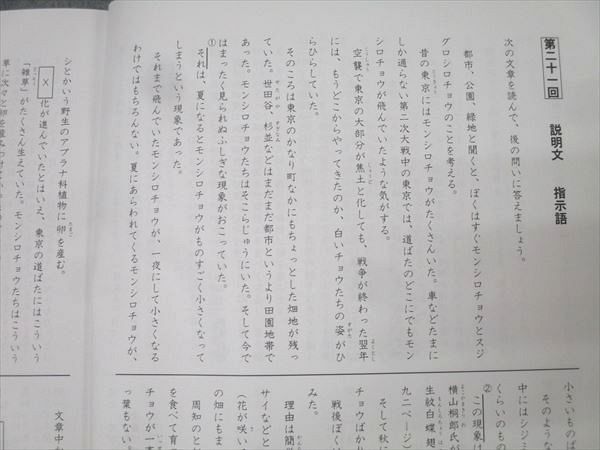 第二十一回　説明文　指示語
次の文章を読んで、後の問いに答えましょう。
都市、公園、緑地と聞くと、ぼくはすぐモンシロチョウとスジ
グロシロチョウのことを考える。
昔の東京にはモンシロチョウがたくさんいた。車などたまに
しか通らない第二次大戦中の東京では、道ばたのどこにでもモン
シロチョウが飛んでいたような気がする。
空襲で東京の大部分が焦土と化しても、戦争が終わった翌年
には、もうどこからやってきたのか、白いチョウたちの姿がひ
らひらしていた。
そのころは東京のかなり町なかにもちょっとした畑地が残っ
ていた。世田谷、杉並などはまだまだ都市というより田園地帯で
あった。モンシロチョウたちはそこらじゅうにいた。そして今で
はまったく見られぬふしぎな現象がおこっていた。
①それは、夏になるとモンシロチョウがものすごく小さくなって
しまうという現象であった。
それまで飛んでいたモンシロチョウが、一夜にして小さくなる
わけではもちろんない。夏にあらわれてくるモンシロチョウが、
小さいものば
そのような
中にはシジミ
くらいのもの
②この現象は
横山桐郎氏が
生紋白蝶翅
九二ページ）
そして秋に
チョウばかり
戦後ぼくは
みた。
理由は簡
サイなどと
（花が咲い
周知のと
の畑にもま
を食べて育
チョウが一
っ葉もない。
シとかいう野生のアブラナ科植物に卵を産む。
X化が進んでいたとはいえ、東京の道ばたにはこういう
「雑草」がたくさん生えていた。モンシロチョウたちはこういう
文章中